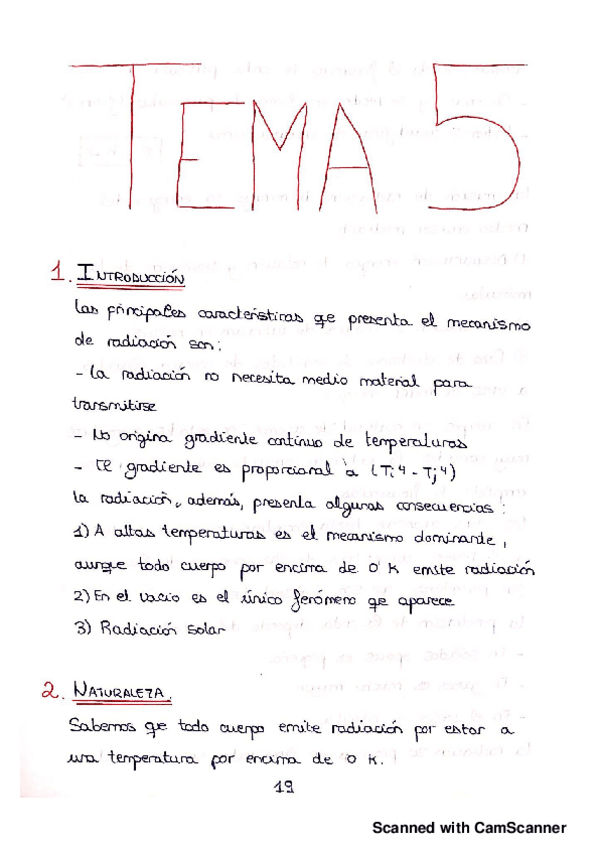 TEMA 5
1. INTRODUCCIÓN
Las principales características qe presenta el mecanismo
de radiación son:
- La radiación no necesita medio material para
transmitirse
- No origina gradiente continuo de temperaturas
- El gradiente es proporcional a (Ti⁴ - Tj⁴)
la radiación, además, presenta algunas consecuencias:
1) A altas temperaturas es el mecanismo dominante,
aunqe todo cuerpo por encima de 0°K emite radiación
2) En el vacio es el único fenómeno qe aparece
3) Radiación solar
2. NATURALEZA.
Sabemos qe todo cuerpo emite radiación por estar a
una temperatura por encima de 0 K.
19
Scanned with CamScanner